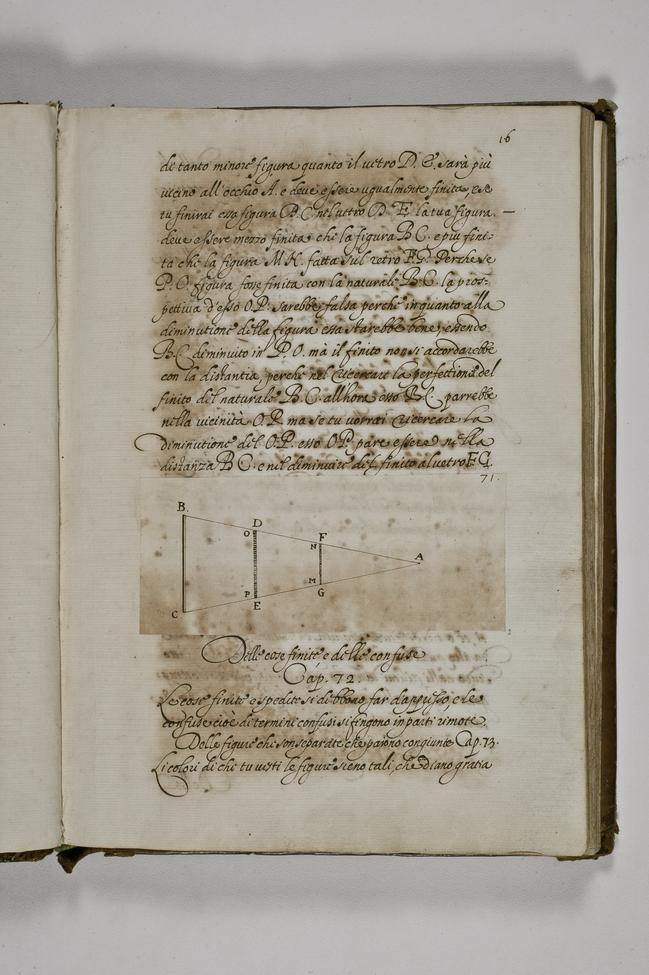 16
di tanto minore figura quanto il vetro D. E. sarà più
vicino all'occhio A. e deve essere ugualmente finita, e se
tu finirai essa figura B. C. nel vetro D E la tua figura
deve essere mezzo finita che la figura B C. e piu fini=
ta che la figura M N. fatta sul vetro F G. Perche se
P. O. figura fosse finita con la naturale B. C. la pros=
pettiva d'esso O. P. sarebbe falsa perche in quanto alla
diminutione della figura essa starebbe bene, essendo
B C. diminuito in P. O. mà il finito non si accordarebbe
con la distantia, perche nel ricercare la perfettione del
finito del naturale B. C. all'hora esso B C. parrebbe
nella vicinità O. P. ma se tu vorrai ricercare la
diminutione del O. P. esso O P. pare essere nella
distanza B C. e nel diminuire del finito al vetro F G.
71.
B
D
O
F
N
A
M
P
G
C
E
Delle cose finite, e delle confuse
Cap. 72.
Le cose finite e spedite si debbono far d'appresso, e le
confuse cioe di termini confusi si fingono in parti remote.
Delle figure che son separate che paiono congiunte Cap. 73.
Li colori di che tu vesti le figure sieno tali, che diano gratia